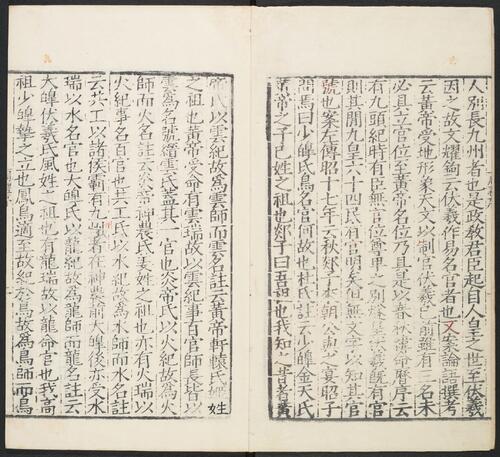 人別長九州者也是政教君臣起自人皇之世至伏羲
因之故文耀鉤云伏羲作易名官者也又案論語撰考
云黃帝受地形象天文以制官伏羲已前雖有三名未
必具立官位至黃帝名位乃具是以春秋緯命曆序云
有九頭紀時有臣無官位尊卑之別燧皇伏羲既有官
則其間九皇六十四民有官明矣但無文字以知其官
號也案左傳昭十七年云秋郯子來朝公與之宴昭子
問焉曰少皞氏鳥名官何故也杜氏註云少皞金天氏
黃帝之子己姓之祖也郯子曰吾祖也我知之昔者黃
帝氏以雲紀故為雲師而雲名註云黃帝軒轅氏姬姓
之祖也黃帝受命有雲瑞故以雲紀事百官師長皆以
雲為名號縉雲氏蓋其一官也炎帝氏以火紀故為火
師而火名註云炎帝神農氏姜姓之祖也亦有火瑞以
火紀事名百官也共工氏以水紀故為水師而水名註
云共工以諸侯霸有九州者在神農前大皞後亦受水
瑞以水名官也大皞氏以龍紀故為龍師而龍名註云
大皞伏羲氏風姓之祖也有龍瑞故以龍命官也我高
祖少皞摯之立也鳳鳥適至故紀於鳥故為鳥師而鳥